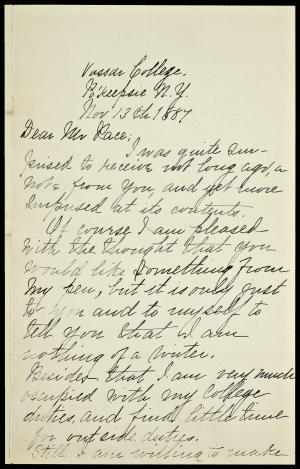 Vassar College,
Po'keepsie N.Y.
Nov 13th 1887
Dear Mr Pace;
I was quite sur-
prised to receive not long ago, a
note from you, and yet more
surprised at its contents.
Of course I am pleased
with the thought that you
would like something from
my pen, but it is only just
to you and to myself to
tell you that I am
nothing of a writer.
Besides that I am very much
occupied with my college
duties, and find little time
for outside duties.
Still I am willing to make